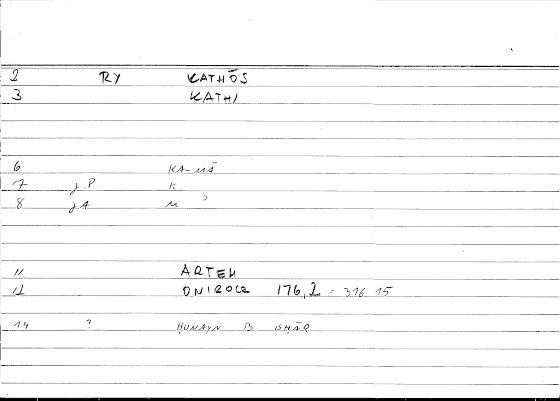 2 RY KATHŌS
3 KATHI
6 KA-MĀ
7 jP K
8 jA M ʾ
11 ARTEM
12 ONIROCR 176,2 = 316.15
14 ? ḤUNAYN B. ISḤĀQ